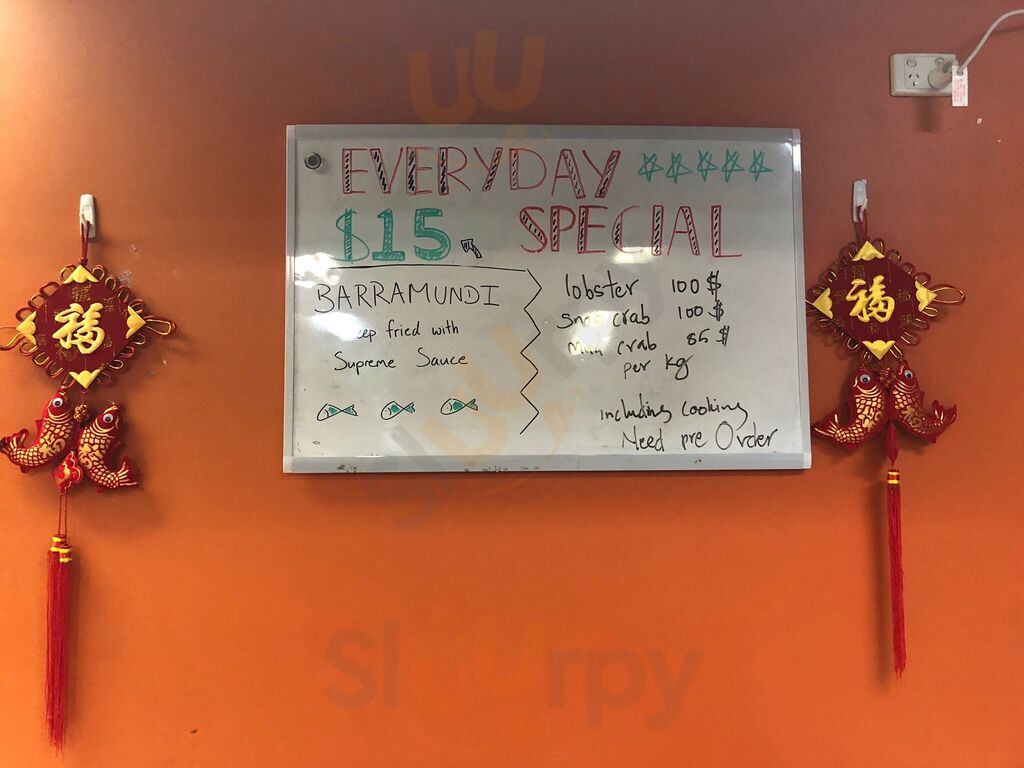 EVERYDAY
$15 SPECIAL
BARRAMUNDI
Deep fried with
Supreme Sauce
lobster 100 $
Snow crab 100 $
Mud crab 85 $
per kg
including cooking
Need pre Order
福
福
Sluurpy